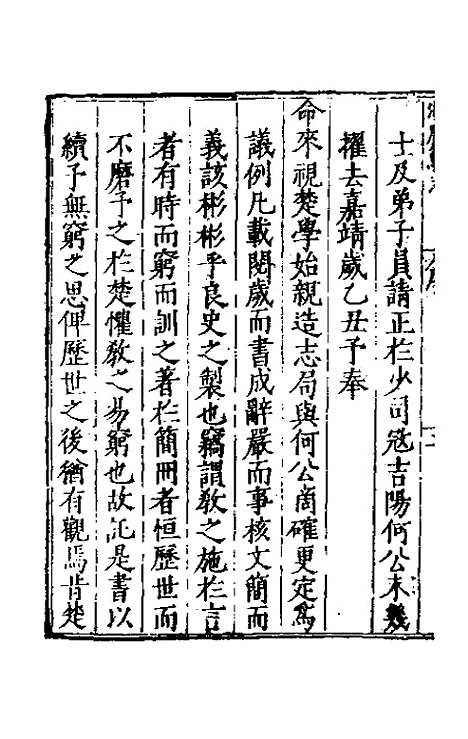 士及弟子員請正於少司冦吉陽何公未幾
擢去嘉靖歲乙丑予奉
命來視楚學始親造志局與何公啇確更定爲
議例凡載閱歲而書成辭嚴而事核文簡而
義該彬彬乎良史之製也竊謂敎之施於言
者有時而窮而訓之著於簡冊者恒歷世而
不磨予之於楚懼敎之易窮也故託是書以
續予無窮之思俾歷世之後猶有觀焉昔楚